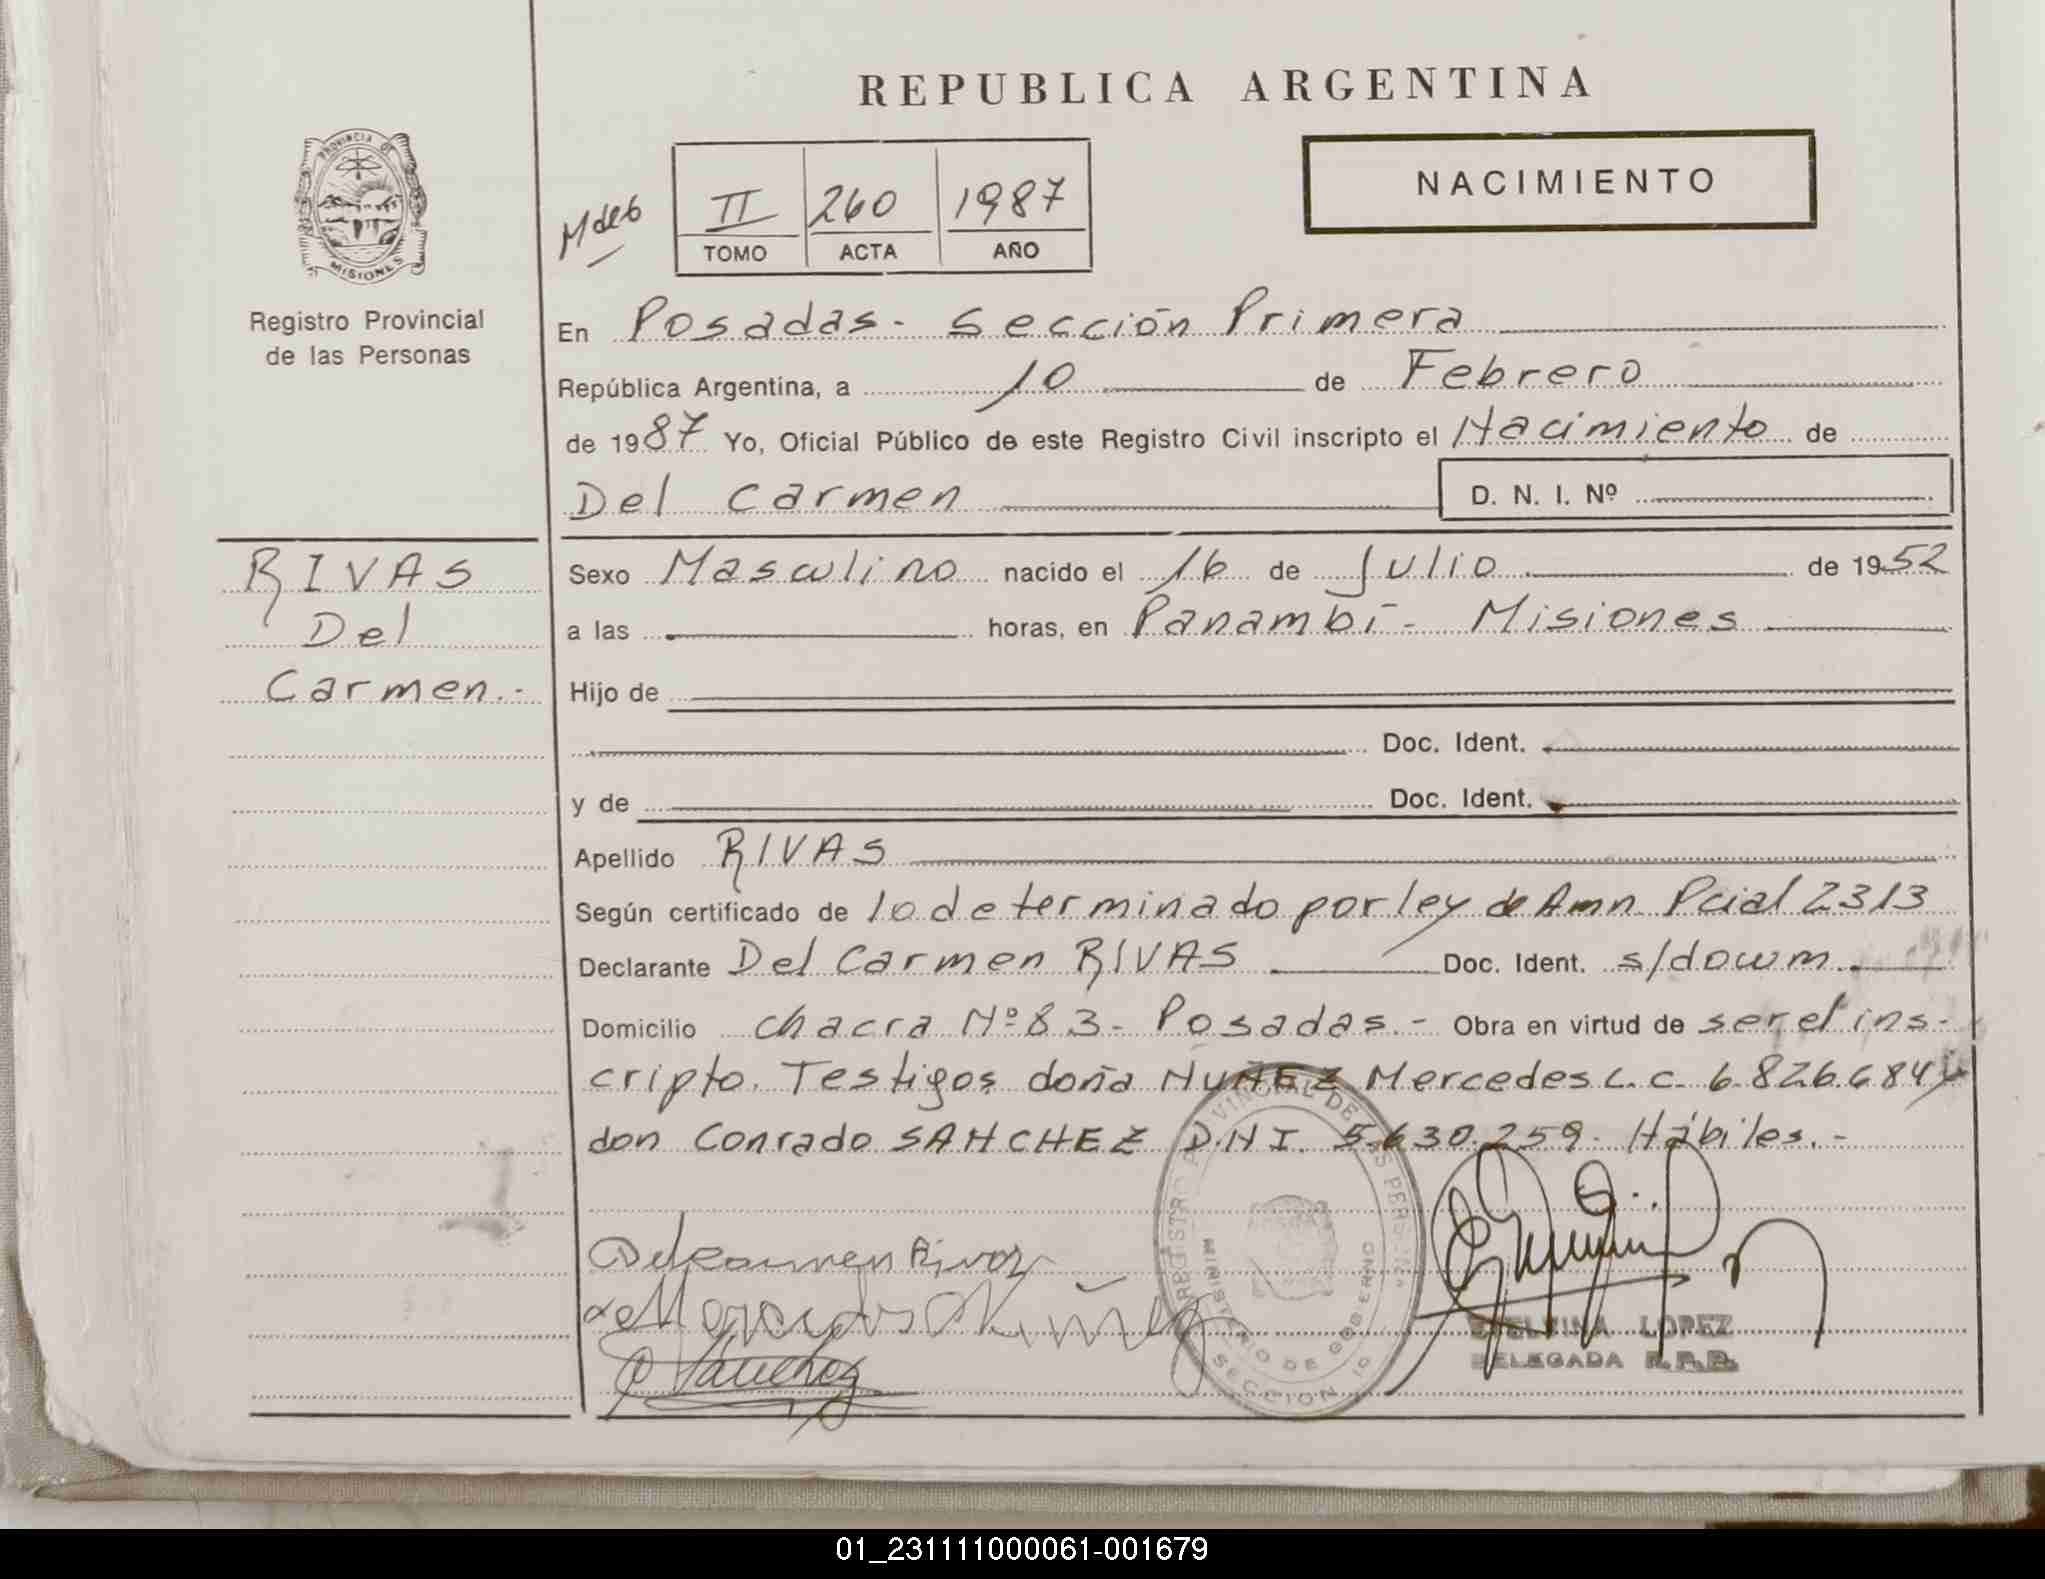 REPUBLICA ARGENTINA
NACIMIENTO
II 260 1987
TOMO ACTA AÑO
PROVINCIA DE
MISIONES
Registro Provincial
de las Personas
En Posadas - Sección Primera
República Argentina, a 10 de Febrero
de 1987 Yo, Oficial Público de este Registro Civil inscripto el Nacimiento de
Del Carmen D. N. I. Nº
RIVAS
Del
Carmen.-
Sexo Masculino nacido el 16 de Julio de 1952
a las horas, en Panambí - Misiones
Hijo de
Doc. Ident.
y de Doc. Ident.
Apellido RIVAS
Según certificado de lo determinado por ley de Amn. Pcial 2313
Declarante Del Carmen RIVAS Doc. Ident. s/docum.
Domicilio chacra Nº 83 - Posadas.- Obra en virtud de ser el ins-
cripto. Testigos doña NUÑEZ Mercedes L.C. 6.826.684 y
don Conrado SANCHEZ D.N.I. 5.630.259. Hábiles.-
Del Carmen Rivas
Mercedes Núñez
C Sánchez
REGISTRO PROVINCIAL DE LAS PERSONAS
MINISTERIO DE GOBIERNO
SECCION 1º
LOPEZ
DELEGADA R.P.P.
01_231111000061-001679